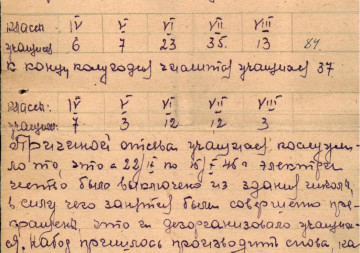 классы IV V VI VII VIII
учащихся 6 7 23 35 13 84
К концу полугодия числится учащихся 37
классы: IV V VI VII VIII
учащихся: 7 3 12 12 3
Причиной отсева учащихся послужи-
ло то, что с 22/II по 15/I 46 г электри
чество было выключено из здания школы,
в силу чего занятия были совершенно пре-
кращены, это и дезорганизовало учащих-
ся. Набор пришлось производить снова, на